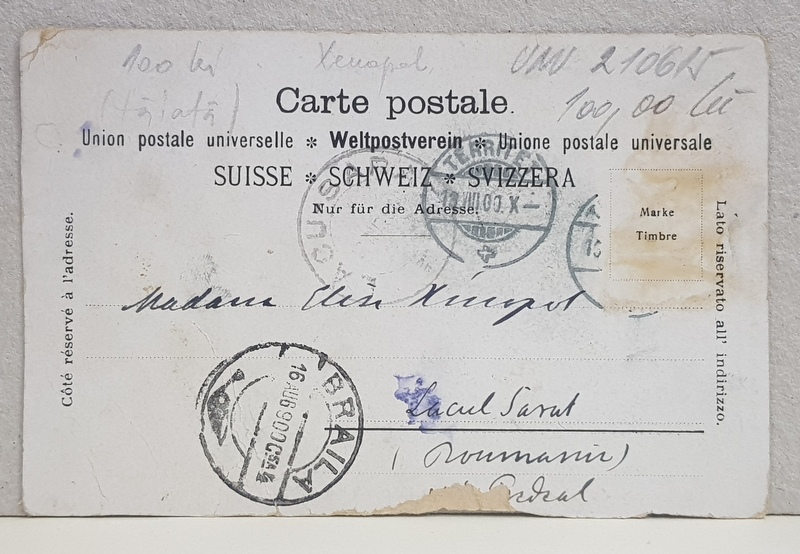 100 lei Xenopol VMV 210615
(tăiată) 100,00 lei
Carte postale.
Union postale universelle * Weltpostverein * Unione postale universale
SUISSE * SCHWEIZ * SVIZZERA
Nur für die Adresse.
TERRITET
13.VIII.00.X—
Marke
Timbre
Côté réservé à l'adresse.
Lato riservato all' indirizzo.
Madame Elise Xénopol
Lacul Sarat
(Roumanie)
Predeal
BRAILA
16 AUG 900